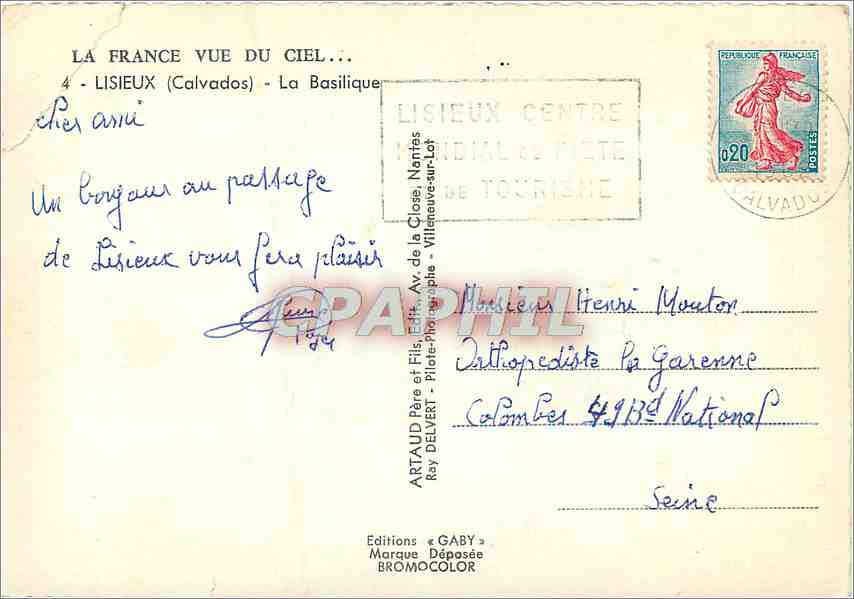 LA FRANCE VUE DU CIEL...
4 - LISIEUX (Calvados) - La Basilique
cher ami
Un bonjour au passage
de Lisieux vous fera plaisir
LISIEUX CENTRE
MONDIAL DE PIETE
DE TOURISME
REPUBLIQUE FRANÇAISE
0,20
POSTES
CALVADOS
ARTAUD Père et Fils, Edit., Av. de la Close, Nantes
Ray DELVERT - Pilote-Photographe - Villeneuve-sur-Lot
CPAPHIL
Monsieur Henri Mouton
Orthopediste la Garenne
Colombes 49 Bd National
Seine
Editions « GABY »
Marque Déposée
BROMOCOLOR